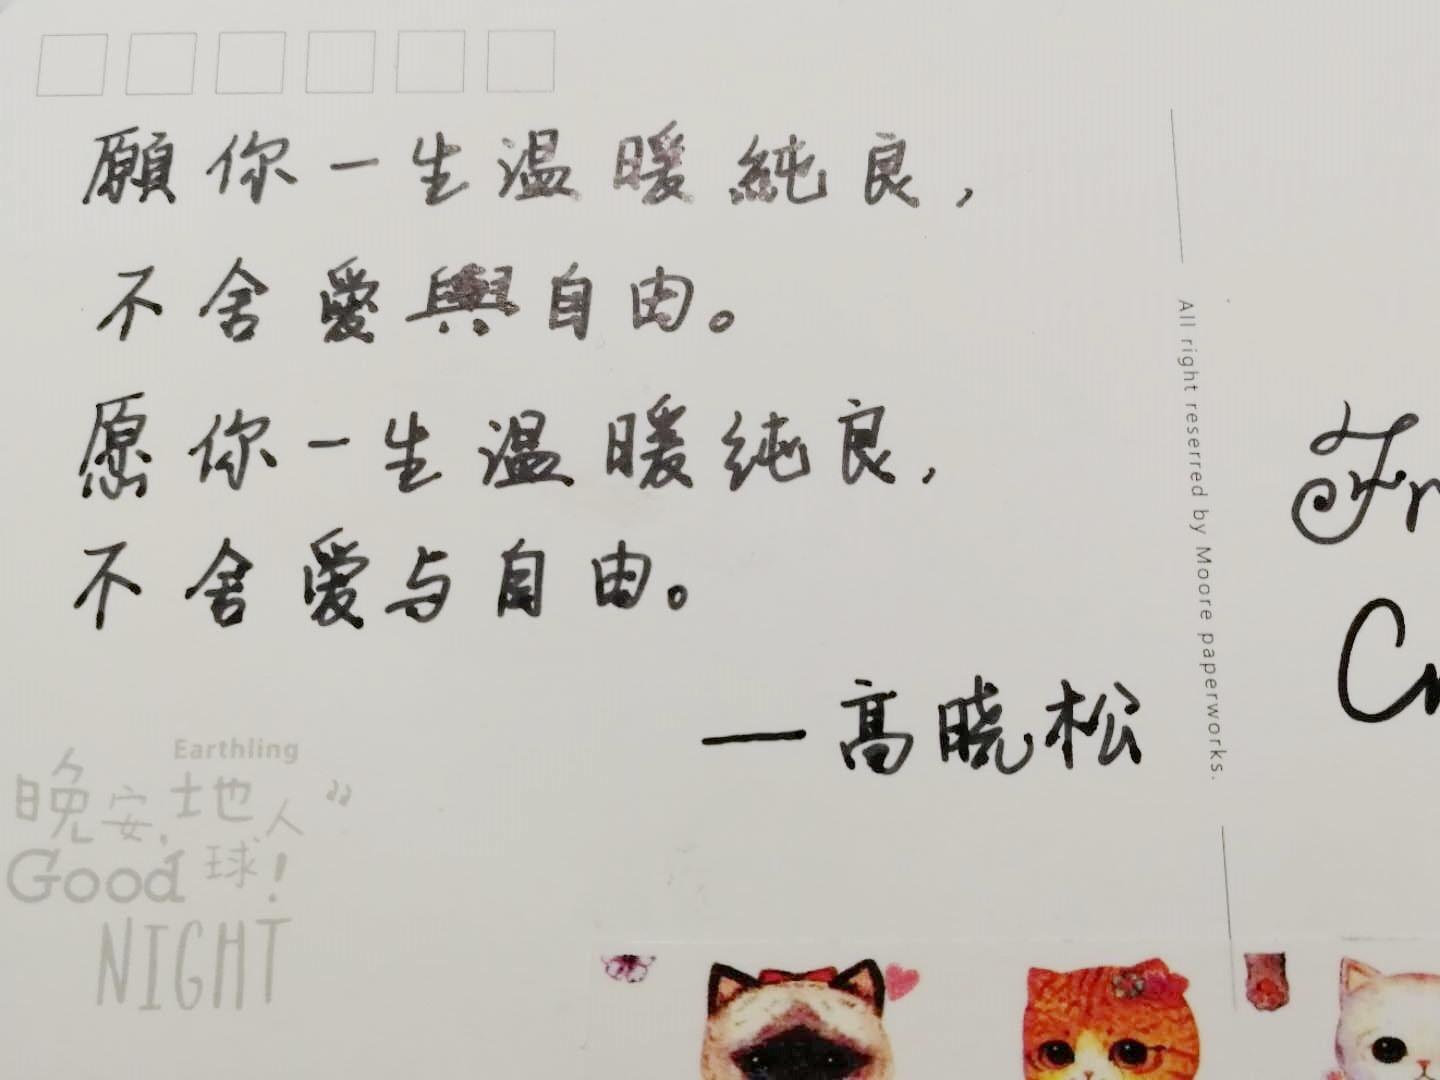 願你一生温暖純良，
不舍愛與自由。
愿你一生温暖纯良，
不舍愛与自由。
—高晓松
All right reserred by Moore paperworks.
Fr
Earthling
晚安，地球人！
Good
NIGHT